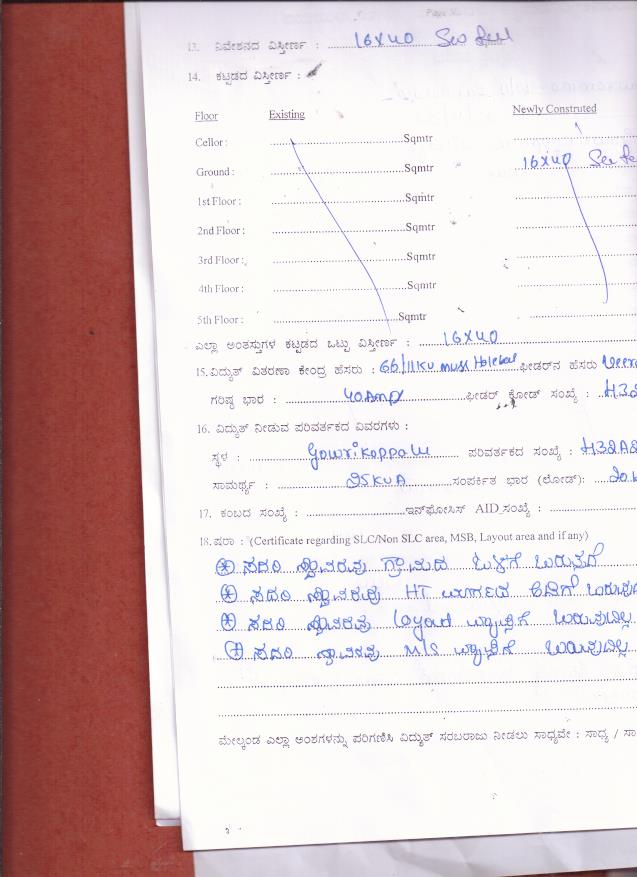 13. ನಿವೇಶನದ ವಿಸ್ತೀರ್ಣ : 16X40
14. ಕಟ್ಟಡದ ವಿಸ್ತೀರ್ಣ :
Floor Existing Newly Construted
Cellor : Sqmtr
Ground : Sqmtr 16X40
1st Floor : Sqmtr
2nd Floor : Sqmtr
3rd Floor : Sqmtr
4th Floor : Sqmtr
5th Floor : Sqmtr
ಎಲ್ಲಾ ಅಂತಸ್ತುಗಳ ಕಟ್ಟಡದ ಒಟ್ಟು ವಿಸ್ತೀರ್ಣ : 16X40
15. ವಿದ್ಯುತ್ ವಿತರಣಾ ಕೇಂದ್ರ ಹೆಸರು : 66/11KV MUSS ಫೀಡರ್‌ನ ಹೆಸರು
ಗರಿಷ್ಠ ಭಾರ : 40Amp ಫೀಡರ್ ಕೋಡ್ ಸಂಖ್ಯೆ :
16. ವಿದ್ಯುತ್ ನೀಡುವ ಪರಿವರ್ತಕದ ವಿವರಗಳು :
ಸ್ಥಳ : Gowrikoppalu ಪರಿವರ್ತಕದ ಸಂಖ್ಯೆ :
ಸಾಮರ್ಥ್ಯ : 25KVA ಸಂಪರ್ಕಿತ ಭಾರ (ಲೋಡ್):
17. ಕಂಬದ ಸಂಖ್ಯೆ : ಇನ್‌ಫೋಸಿಸ್ AID ಸಂಖ್ಯೆ :
18. ಷರಾ : (Certificate regarding SLC/Non SLC area, MSB, Layout area and if any)
ಸದರಿ ಸ್ಥಾವರವು ಗ್ರಾಮದ ಒಳಗೆ ಬರುತ್ತದೆ
ಸದರಿ ಸ್ಥಾವರವು HT ಮಾರ್ಗದ
ಸದರಿ ಸ್ಥಾವರವು Layout ವ್ಯಾಪ್ತಿಗೆ ಬರುವುದಿಲ್ಲ
ಸದರಿ ಸ್ಥಾವರವು M/S ವ್ಯಾಪ್ತಿಗೆ ಬರುವುದಿಲ್ಲ
ಮೇಲ್ಕಂಡ ಎಲ್ಲಾ ಅಂಶಗಳನ್ನು ಪರಿಗಣಿಸಿ ವಿದ್ಯುತ್ ಸರಬರಾಜು ನೀಡಲು ಸಾಧ್ಯವೇ : ಸಾಧ್ಯ / ಸಾ